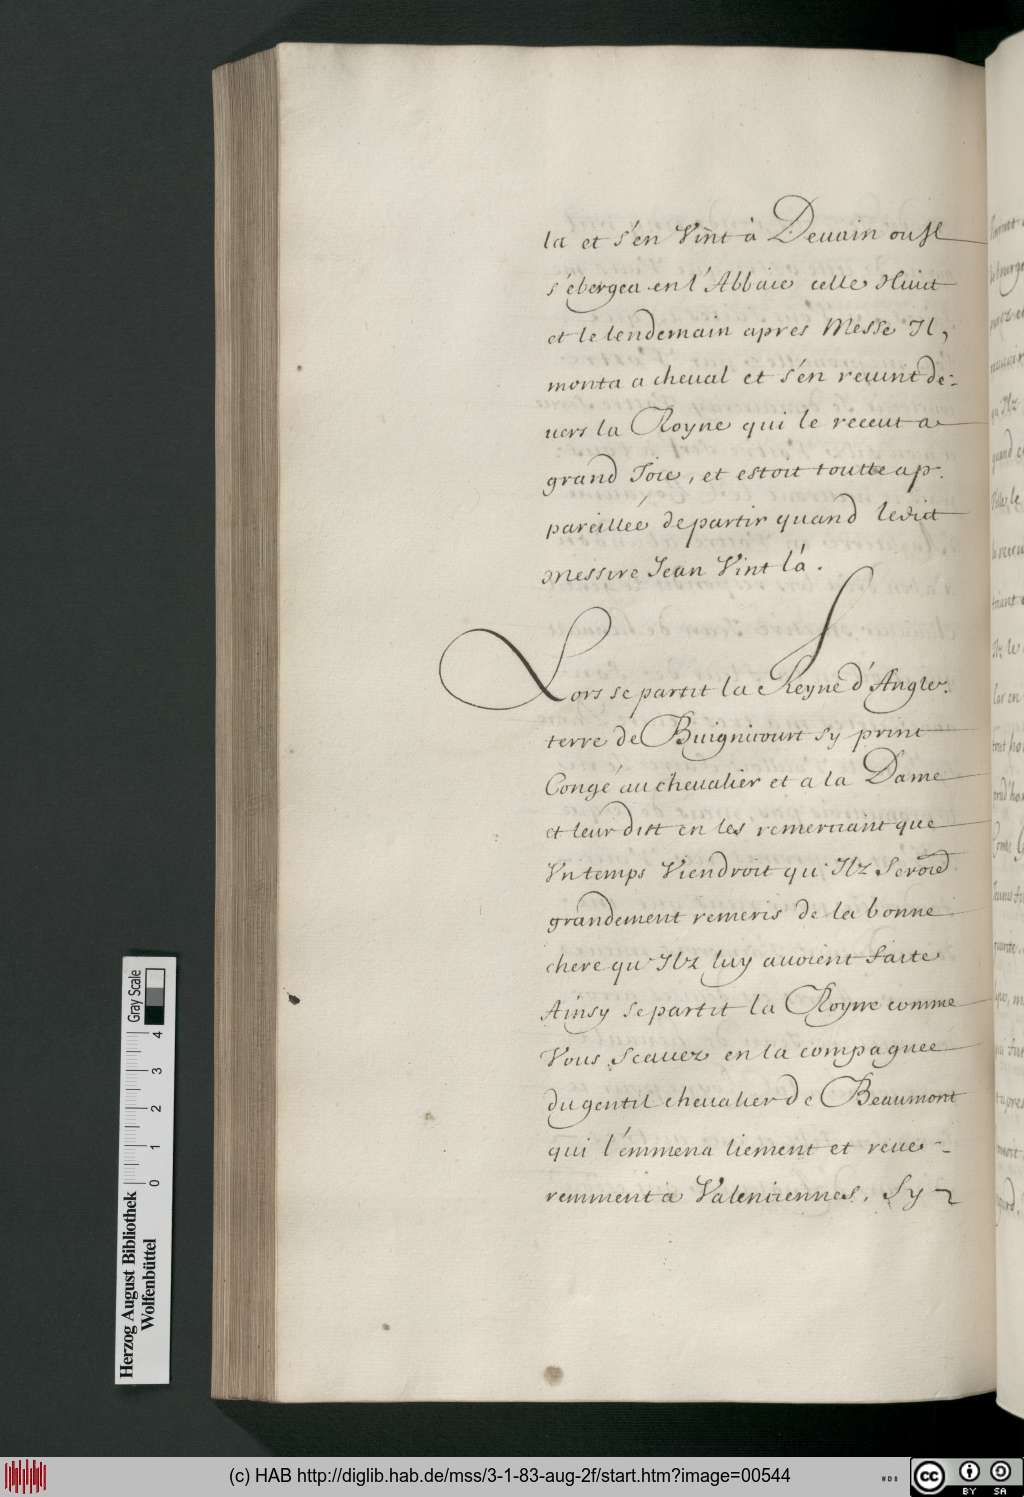 la et s'en Vint à Deuain ou Il
s'ébergea en l'Abbaie celle Nuict
et le lendemain apres Messe Il,
monta a cheual et s'en reuint de-
uers la Royne qui le receut a
grand Joie, et estoit toutte ap-
pareilléé de partir quand ledict
messire Jean Vint là.
Lors se partit la Reyne d'Angle-
terre de Buignicourt sy print
Congé au cheualier et a la Dame
et leur dist en les remerciant que
Vn temps Viendroit qu'Ilz Seroiẽt
grandement remeris de la bonne
chere qu'Ilz luy auoient faite
Ainsy se partit la Royne comme
Vous Scauez en la compagnee
du gentil cheualier de Beaumont
qui l'emmena liement et reue-
remment a Valenciennes. Sy
Herzog August Bibliothek
Wolfenbüttel
0 1 2 3 4
Gray Scale
(c) HAB http://diglib.hab.de/mss/3-1-83-aug-2f/start.htm?image=00544
WDB
cc BY SA